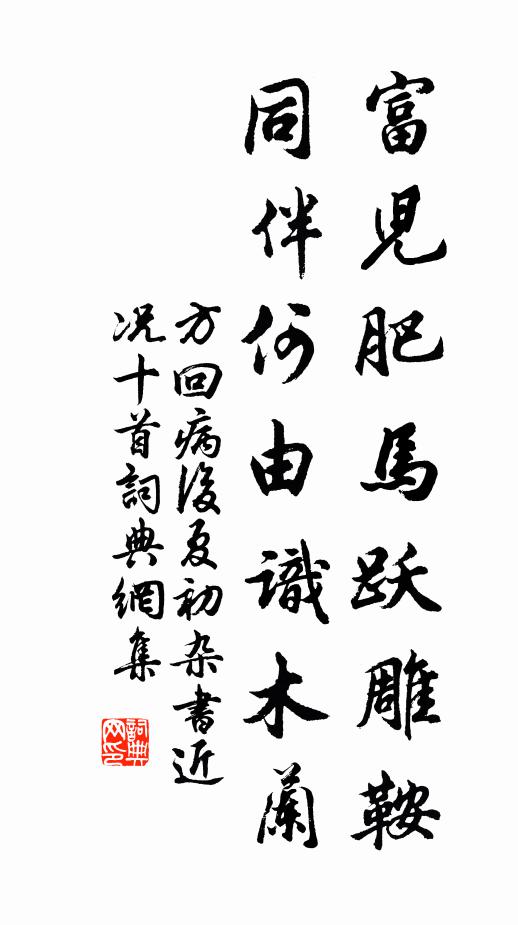 富兒肥馬跃雕鞍
同伴何由識木蘭
方回病後夏初杂書近
况十首詞典網集
詞典
网印